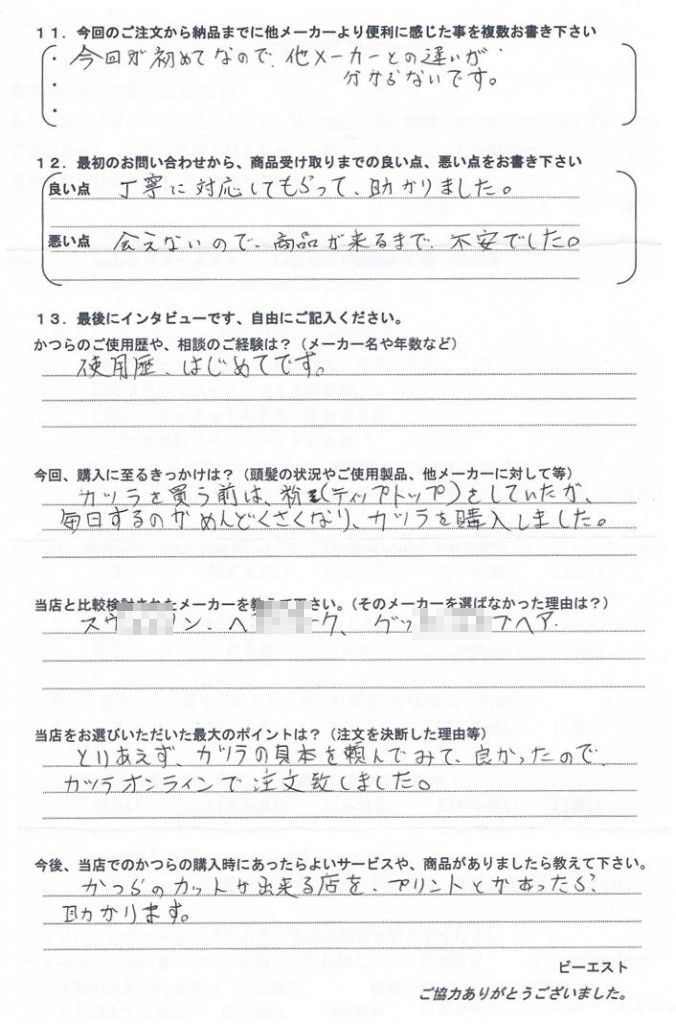 11．今回のご注文から納品までに他メーカーより便利に感じた事を複数お書き下さい
・今回が初めてなので、他メーカーとの違いが、
・分からないです。
・
12．最初のお問い合わせから、商品受け取りまでの良い点、悪い点をお書き下さい
良い点 丁寧に対応してもらって、助かりました。
悪い点 会えないので、商品が来るまで、不安でした。
13．最後にインタビューです、自由にご記入ください。
かつらのご使用歴や、相談のご経験は？（メーカー名や年数など）
使用歴、はじめてです。
今回、購入に至るきっかけは？（頭髪の状況やご使用製品、他メーカーに対して等）
カツラを買う前は、粉(ティップトップ)をしていたが、
毎日するのがめんどくさくなり、カツラを購入しました。
当店と比較検討されたメーカーを教えて下さい。（そのメーカーを選ばなかった理由は？）
スヴ ン、ヘ ーク、グッ プヘア
当店をお選びいただいた最大のポイントは？（注文を決断した理由等）
とりあえず、カツラの見本を頼んでみて、良かったので、
カツラオンラインで注文致しました。
今後、当店でのかつらの購入時にあったらよいサービスや、商品がありましたら教えて下さい。
かつらのカットが出来る店を、プリントとかあったら、
助かります。
ビーエスト
ご協力ありがとうございました。